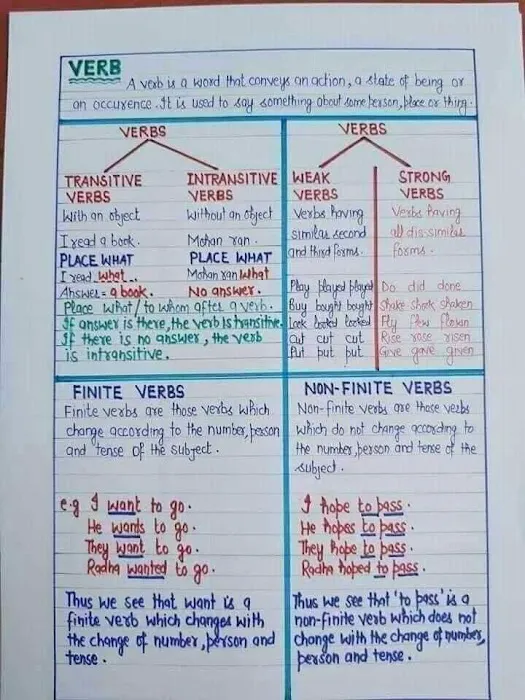 VERB
A verb is a word that conveys an action, a state of being or
an occurence. It is used to say something about some person, place or thing.
VERBS
TRANSITIVE VERBS
With an object
I read a book.
PLACE WHAT
I read what.
Answer = a book.
INTRANSITIVE VERBS
Without an object
Mohan ran.
PLACE WHAT
Mohan ran What
No answer.
Place what / to whom after a verb.
If answer is there, the verb is transitive.
If there is no answer, the verb
is intransitive.
VERBS
WEAK
VERBS
Verbs having
similar second
and third forms.
Play played played
Buy bought bought
Look looked looked
Cut cut cut
Put put put
STRONG
VERBS
Verbs having
all dis-similar
forms.
Do did done
Shake shook shaken
Fly flew flown
Rise rose risen
Give gave given
FINITE VERBS
Finite verbs are those verbs which
change according to the number, person
and tense of the subject.
e.g I want to go.
He wants to go.
They want to go.
Radha wanted to go.
Thus we see that want is a
finite verb which changes with
the change of number, person and
tense.
NON-FINITE VERBS
Non-finite verbs are those verbs
which do not change according to
the number, person and tense of the
subject.
I hope to pass.
He hopes to pass.
They hope to pass.
Radha hoped to pass.
Thus we see that 'to pass' is a
non-finite verb which does not
change with the change of number,
person and tense.